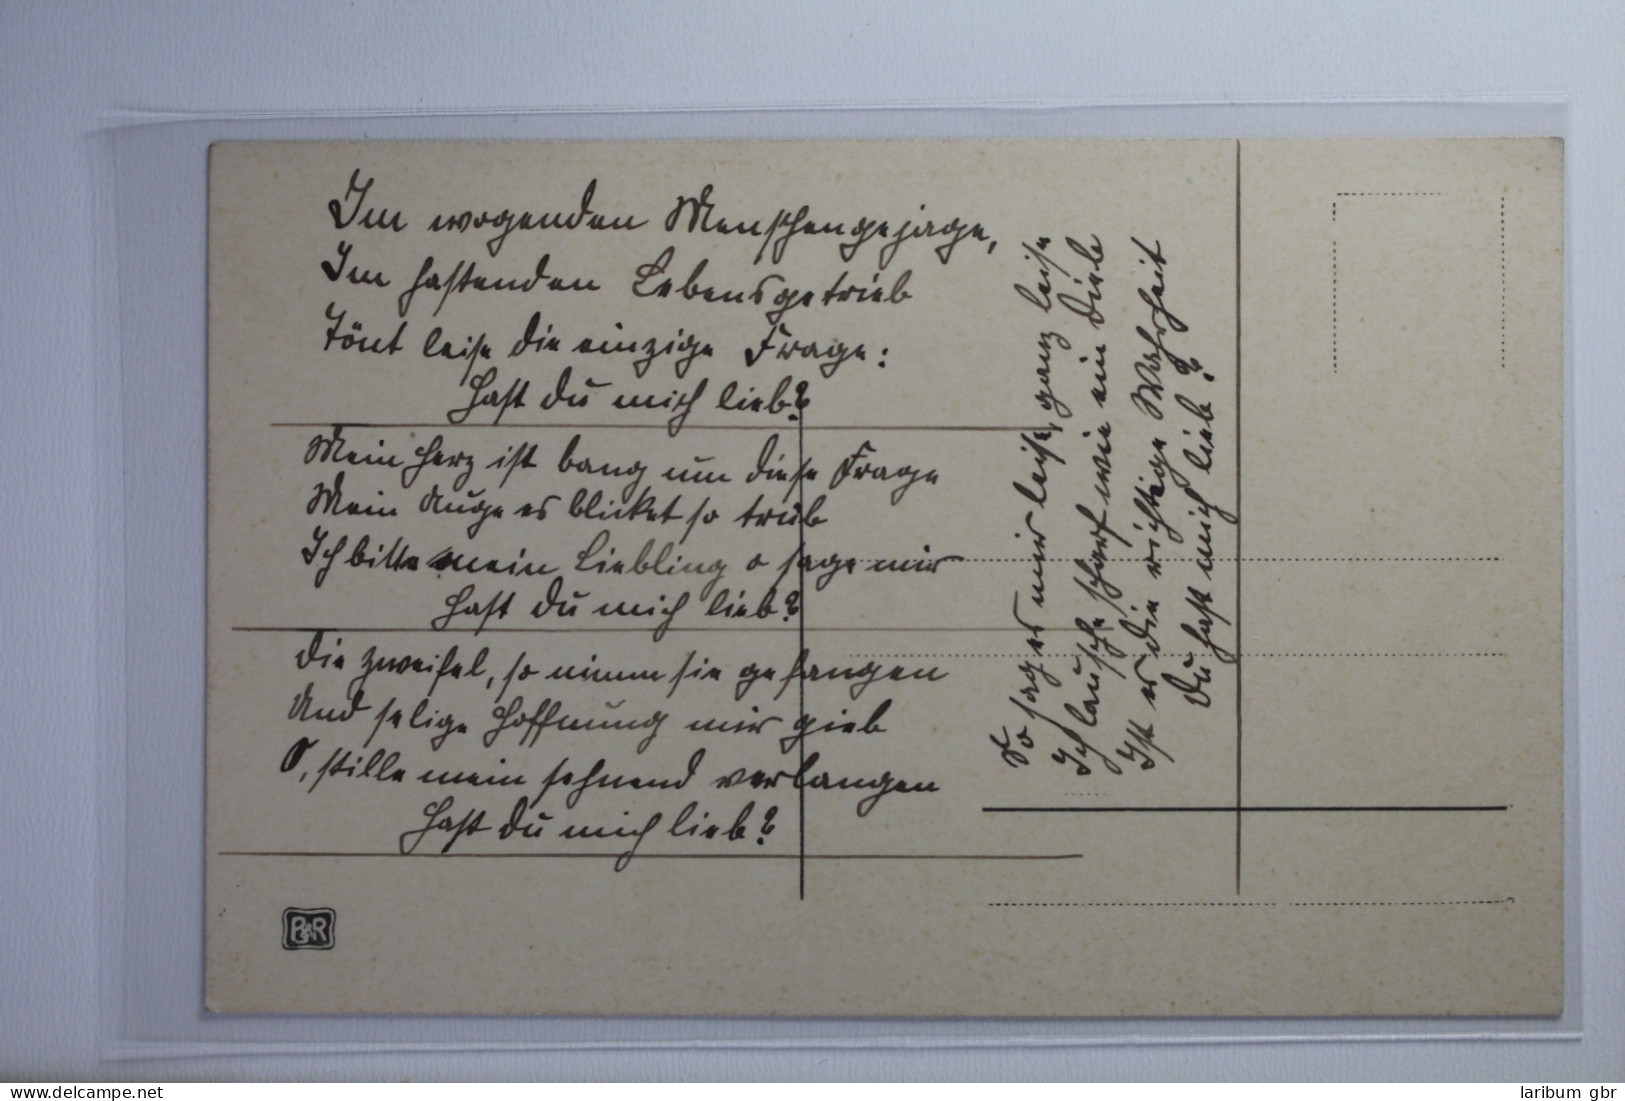 Im wogenden Menschengejage,
Im hastenden Lebensgetrieb
Tönt leise die einzige Frage:
Hast du mich lieb?
Mein Herz ist bang um diese Frage
Mein Auge es blicket so trüb
Ich bitte mein Liebling o sage mir
Hast du mich lieb?
Die Zweifel, so nimm sie gefangen
Und selige Hoffnung mir gieb
O, stille mein sehnend verlangen
Hast du mich lieb?
So sag es mir leise, ganz leise
Ich lausche scharf wie ein Dieb
Ist es die richtige Wahrheit
Du hast mich lieb?
B&R
laribum gbr